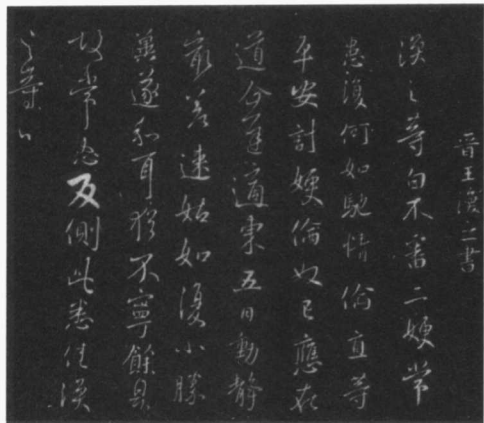 晉王渙之書
渙之等白不審二嫂常
患復何如馳情倫直等
平安計嫂倫奴已應在
道企遲道東五日動靜
差速姑如復小勝
無遂和耳猶不寧餘具
故常及側此悉佳渙
之等白